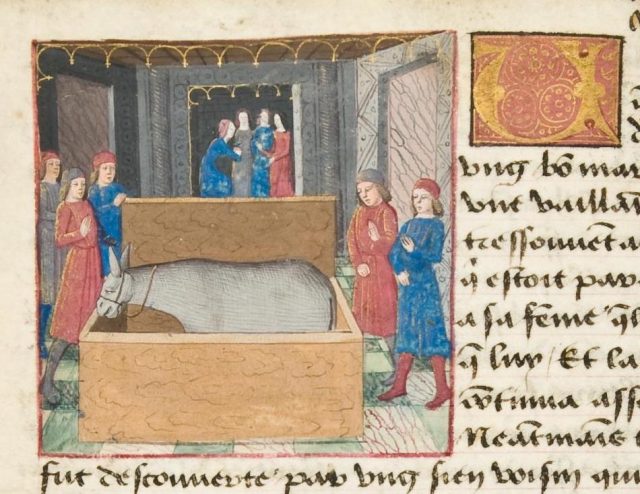 U
vng bõ mar
vne vaillan
tressouuent a
q̃ estoit par
a sa fẽme q̃l
q̃ luy / Et la
cõtinua asse
Neãtmais t
fut descouuerte par vng sien voisin qui